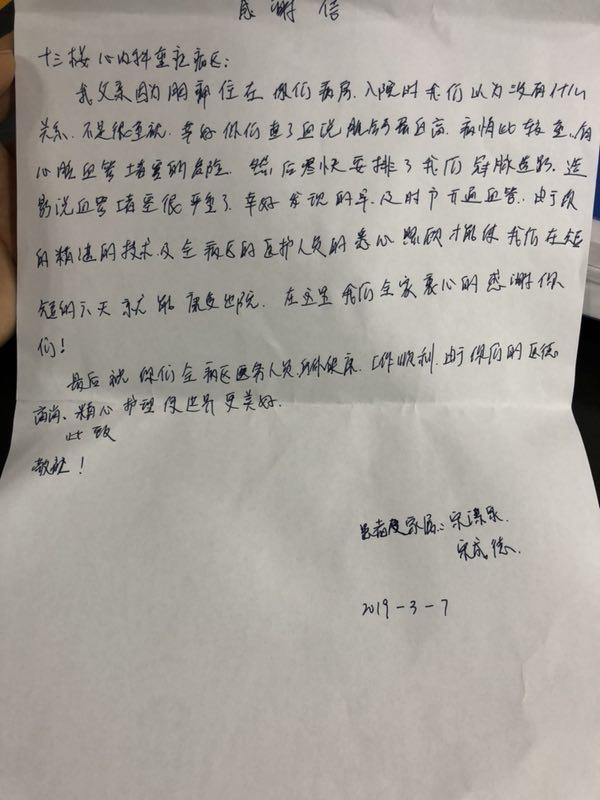 感谢信
十三楼心内科重症病区：
我父亲因为胸部住在你们病房。入院时我们以为没有什么
关系、不是很重视，幸好你们查了血说肌钙蛋白高，病情比较重，有
心脏血管堵塞的危险。然后尽快安排了我们冠脉造影。造
影说血管堵塞很严重了，幸好发现的早，及时开通血管，由于
的精湛的技术及全病区的医护人员的悉心照顾才能使我们在短
短的六天就能康复出院。在这里我们全家衷心的感谢你
们！
最后祝你们全病区医务人员身体健康，工作顺利，由于你们的医德
高尚、精心护理使世界更美好。
此致
敬礼！
患者及家属：宋
宋成德
2019-3-7